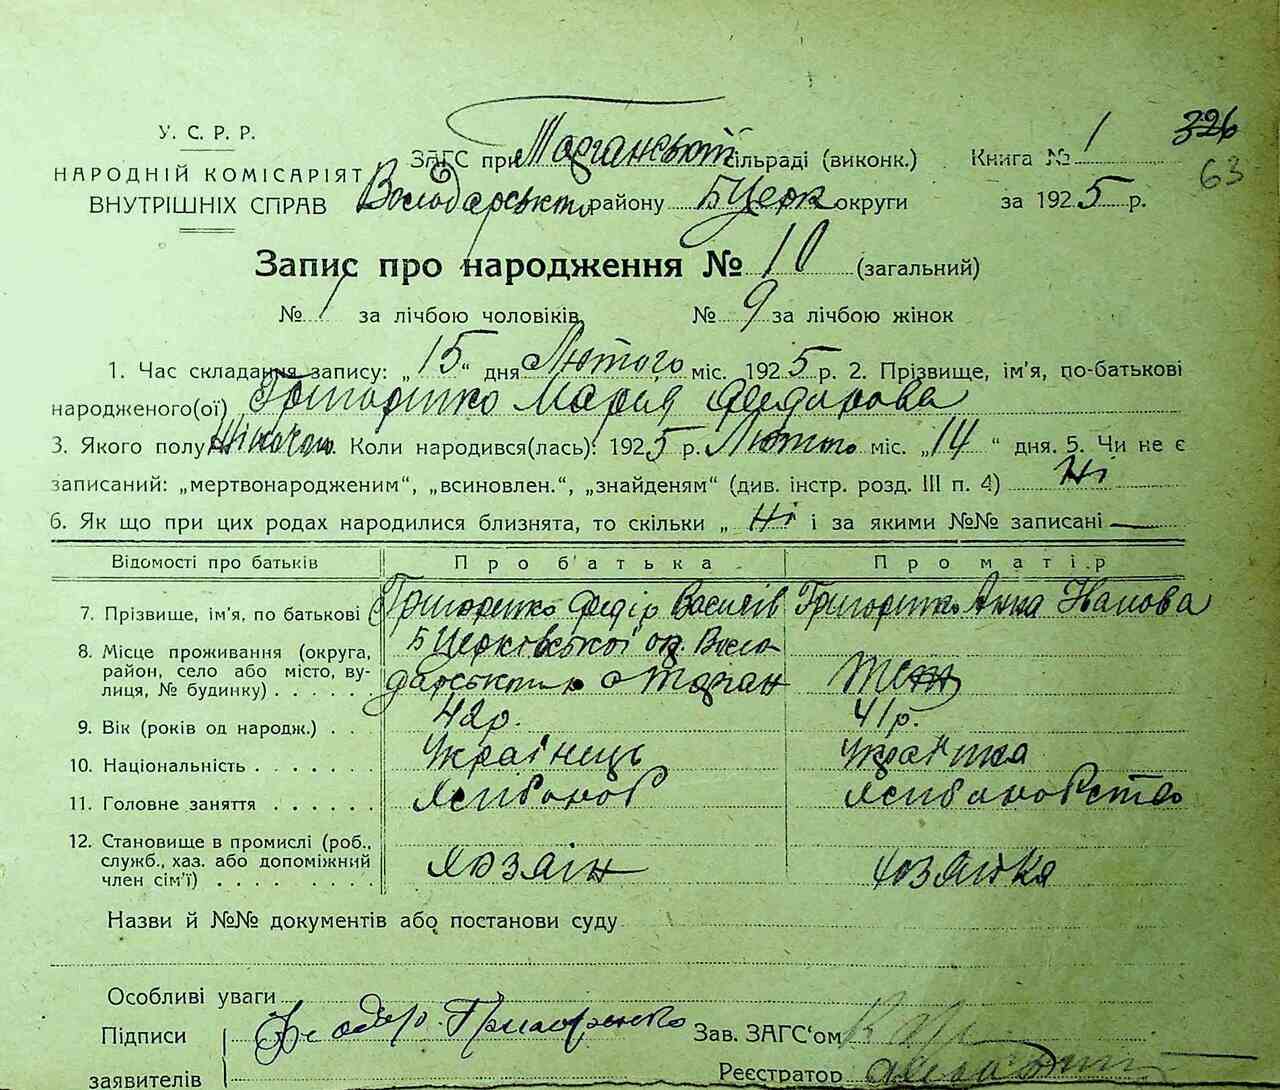 326
63
У. С. Р. Р.
НАРОДНІЙ КОМІСАРІЯТ
ВНУТРІШНІХ СПРАВ
ЗАГС при Торганській сільраді (виконк.) Книга № 1
Володарського району БЦерк округи за 1925 р.
Запис про народження № 10 (загальний)
№ 1 за лічбою чоловіків № 9 за лічбою жінок
1. Час складання запису: „15“ дня Лютого міс. 1925 р. 2. Прізвище, ім'я, по-батькові
народженого(ої) Григоренко Марія Федорова
3. Якого полу Жіночого. Коли народився(лась): 1925 р. Лютого міс. „14“ дня. 5. Чи не є
записаний: „мертвонародженим“, „всиновлен.“, „знайденям“ (див. інстр. розд. III п. 4) Ні
6. Як що при цих родах народилися близнята, то скільки „ Ні і за якими №№ записані —
Відомості про батьків Про батька Про матір
7. Прізвище, ім'я, по батькові Григоренко Федір Василів Григоренко Анна Іванова
8. Місце проживання (округа, район, село або місто, вулиця, № будинку) БЦерківської ок. Воло
дарського с Торган теж
9. Вік (років од народж.) 42р. 41р.
10. Національність Українець Українка
11. Головне заняття Хлібороб Хліборобство
12. Становище в промислі (роб., служб., хаз. або допоміжний член сім'ї) Хозаїн хозяйка
Назви й №№ документів або постанови суду
Особливі уваги
Підписи Феодор Григоренко Зав. ЗАГС‘ом
заявителів Реєстратор